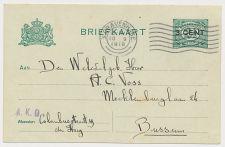 BRIEFKAART
3 CENT
1918
Aan
Den WelEdelgeb. Heer
A.C. Voss
Mecklenburglaan 26
Bussum
A.K.D.
Afzender:
den Haag